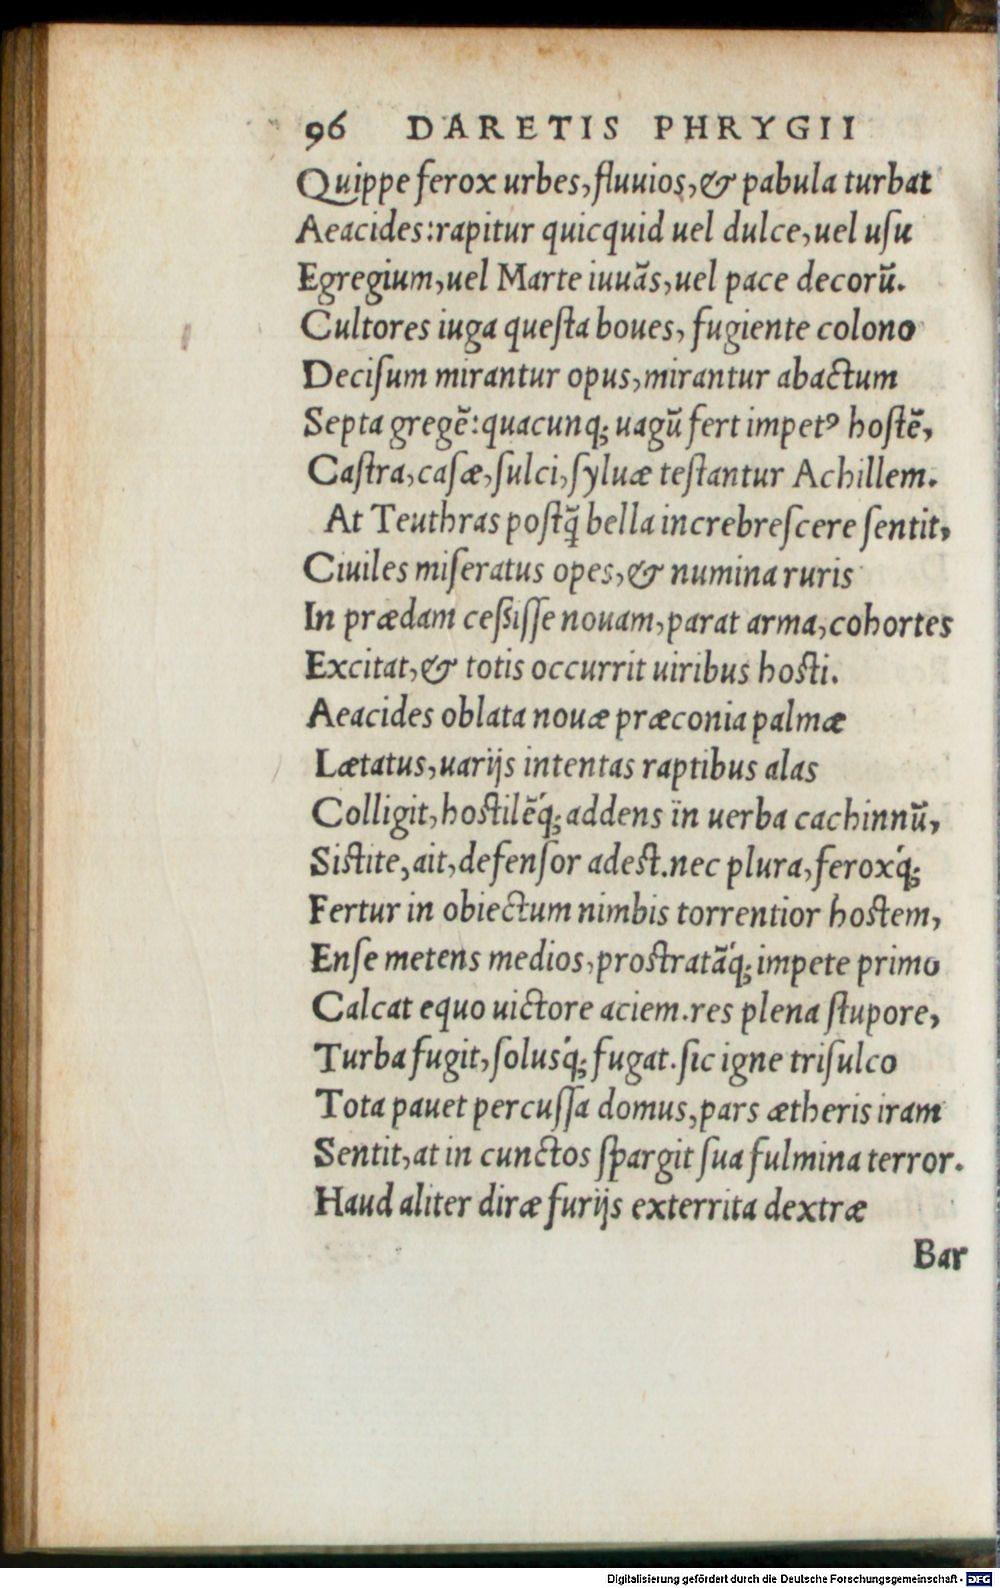 96 DARETIS PHRYGII
Quippe ferox urbes, fluuios, & pabula turbat
Aeacides: rapitur quicquid uel dulce, uel uſu
Egregium, uel Marte iuuãs, uel pace decorũ.
Cultores iuga queſta boues, fugiente colono
Deciſum mirantur opus, mirantur abactum
Septa gregẽ: quacunq; uagũ fert impetꝰ hoſtẽ,
Caſtra, caſæ, ſulci, ſyluæ teſtantur Achillem.
At Teuthras poſtq̃ bella increbreſcere ſentit,
Ciuiles miſeratus opes, & numina ruris
In prædam ceßiſſe nouam, parat arma, cohortes
Excitat, & totis occurrit uiribus hoſti.
Aeacides oblata nouæ præconia palmæ
Lætatus, uarijs intentas raptibus alas
Colligit, hoſtilẽq́; addens in uerba cachinnũ,
Siſtite, ait, defenſor adeſt. nec plura, feroxq́;
Fertur in obiectum nimbis torrentior hoſtem,
Enſe metens medios, proſtratãq́; impete primo
Calcat equo uictore aciem. res plena ſtupore,
Turba fugit, ſolusq́; fugat. ſic igne triſulco
Tota pauet percuſſa domus, pars ætheris iram
Sentit, at in cunctos ſpargit ſua fulmina terror.
Haud aliter diræ furijs exterrita dextræ
Bar
Digitalisierung gefördert durch die Deutsche Forschungsgemeinschaft - DFG